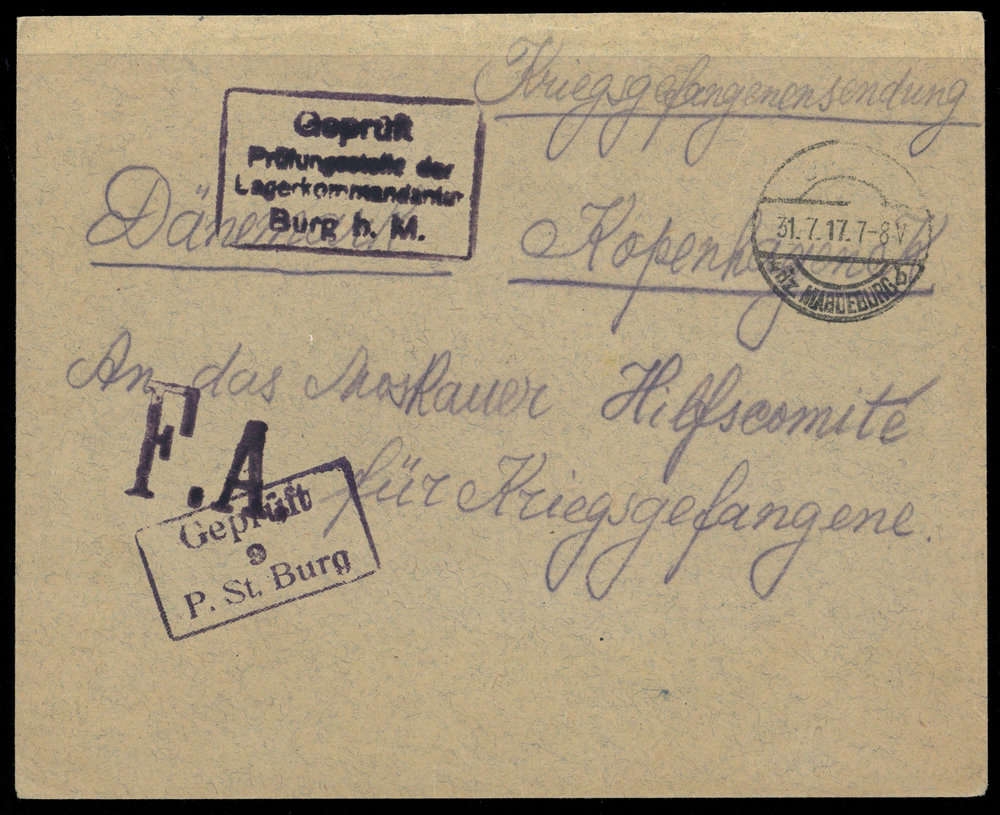 Kriegsgefangenensendung
Geprüft
Prüfungsstelle der
Lagerkommandantur
Burg b. M.
Dänemark Kopenhagen K
31.7.17.7-8V
MAGDEBURG b
An das Moskauer Hilfscomité
für Kriegsgefangene.
F.A.
Geprüft
9
P. St. Burg